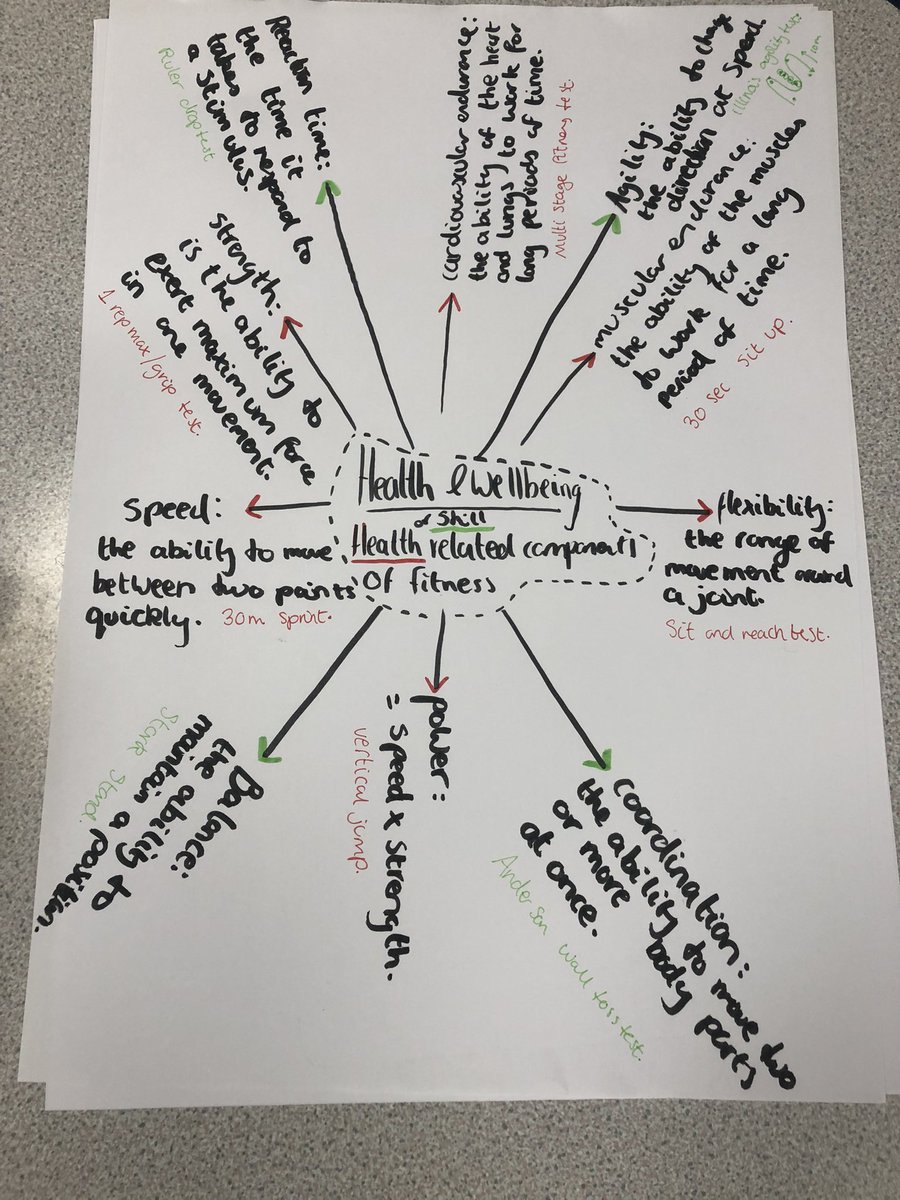 Health & Wellbeing
or Skill
Health related components
of fitness
Reaction time:
the time it
takes to respond to
a stimulus.
Ruler drop test
cardiovascular endurance:
the ability of the heart
and lungs to work for
long periods of time.
Multi stage fitness test
Agility:
the ability to change
direction at speed.
illinois agility test:
10m
muscular endurance:
the ability of the muscles
to work for a long
period of time.
30 sec sit up.
flexibility:
the range of
movement around
a joint.
Sit and reach test.
coordination:
the ability to move two
or more body parts
at once.
Anderson wall toss test.
power:
= speed x strength.
vertical jump.
Balance:
the ability to
maintain a position.
Stork Stand.
Speed:
the ability to move
between two points
quickly. 30m sprint.
strength:
is the ability to
exert maximum force
in one movement.
1 rep max/grip test.